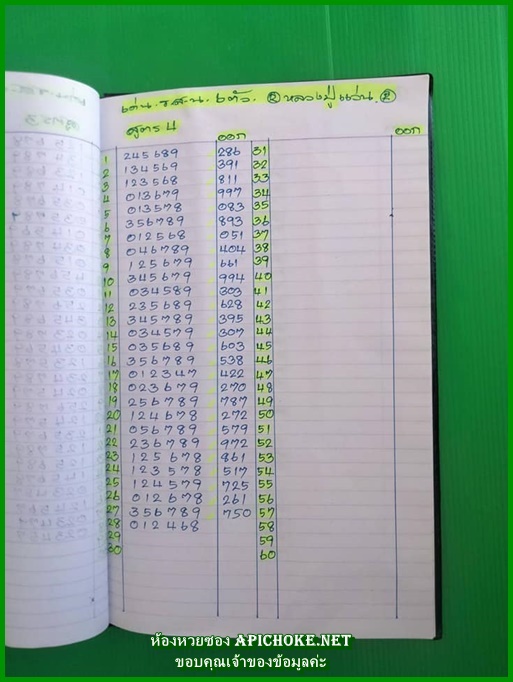 เด่น. ร.ส.น. 6 ตัว. ② หลวงปู่แว่น. ②
สูตร 4
ออก ออก
1 245689 286 31
2 134569 391 32
3 123568 811 33
4 013679 997 34
5 013578 083 35
6 356789 893 36
7 012568 051 37
8 046789 404 38
9 125679 661 39
10 345679 994 40
11 034589 303 41
12 235689 628 42
13 345789 395 43
14 034579 307 44
15 035689 603 45
16 356789 538 46
17 012347 422 47
18 023679 270 48
19 256789 787 49
20 124678 272 50
21 056789 579 51
22 236789 972 52
23 125678 861 53
24 123578 517 54
25 124579 725 55
26 012678 261 56
27 356789 750 57
28 012468 58
29 59
30 60
ห้องหวยซอง APICHOKE.NET
ขอบคุณเจ้าของข้อมูลค่ะ